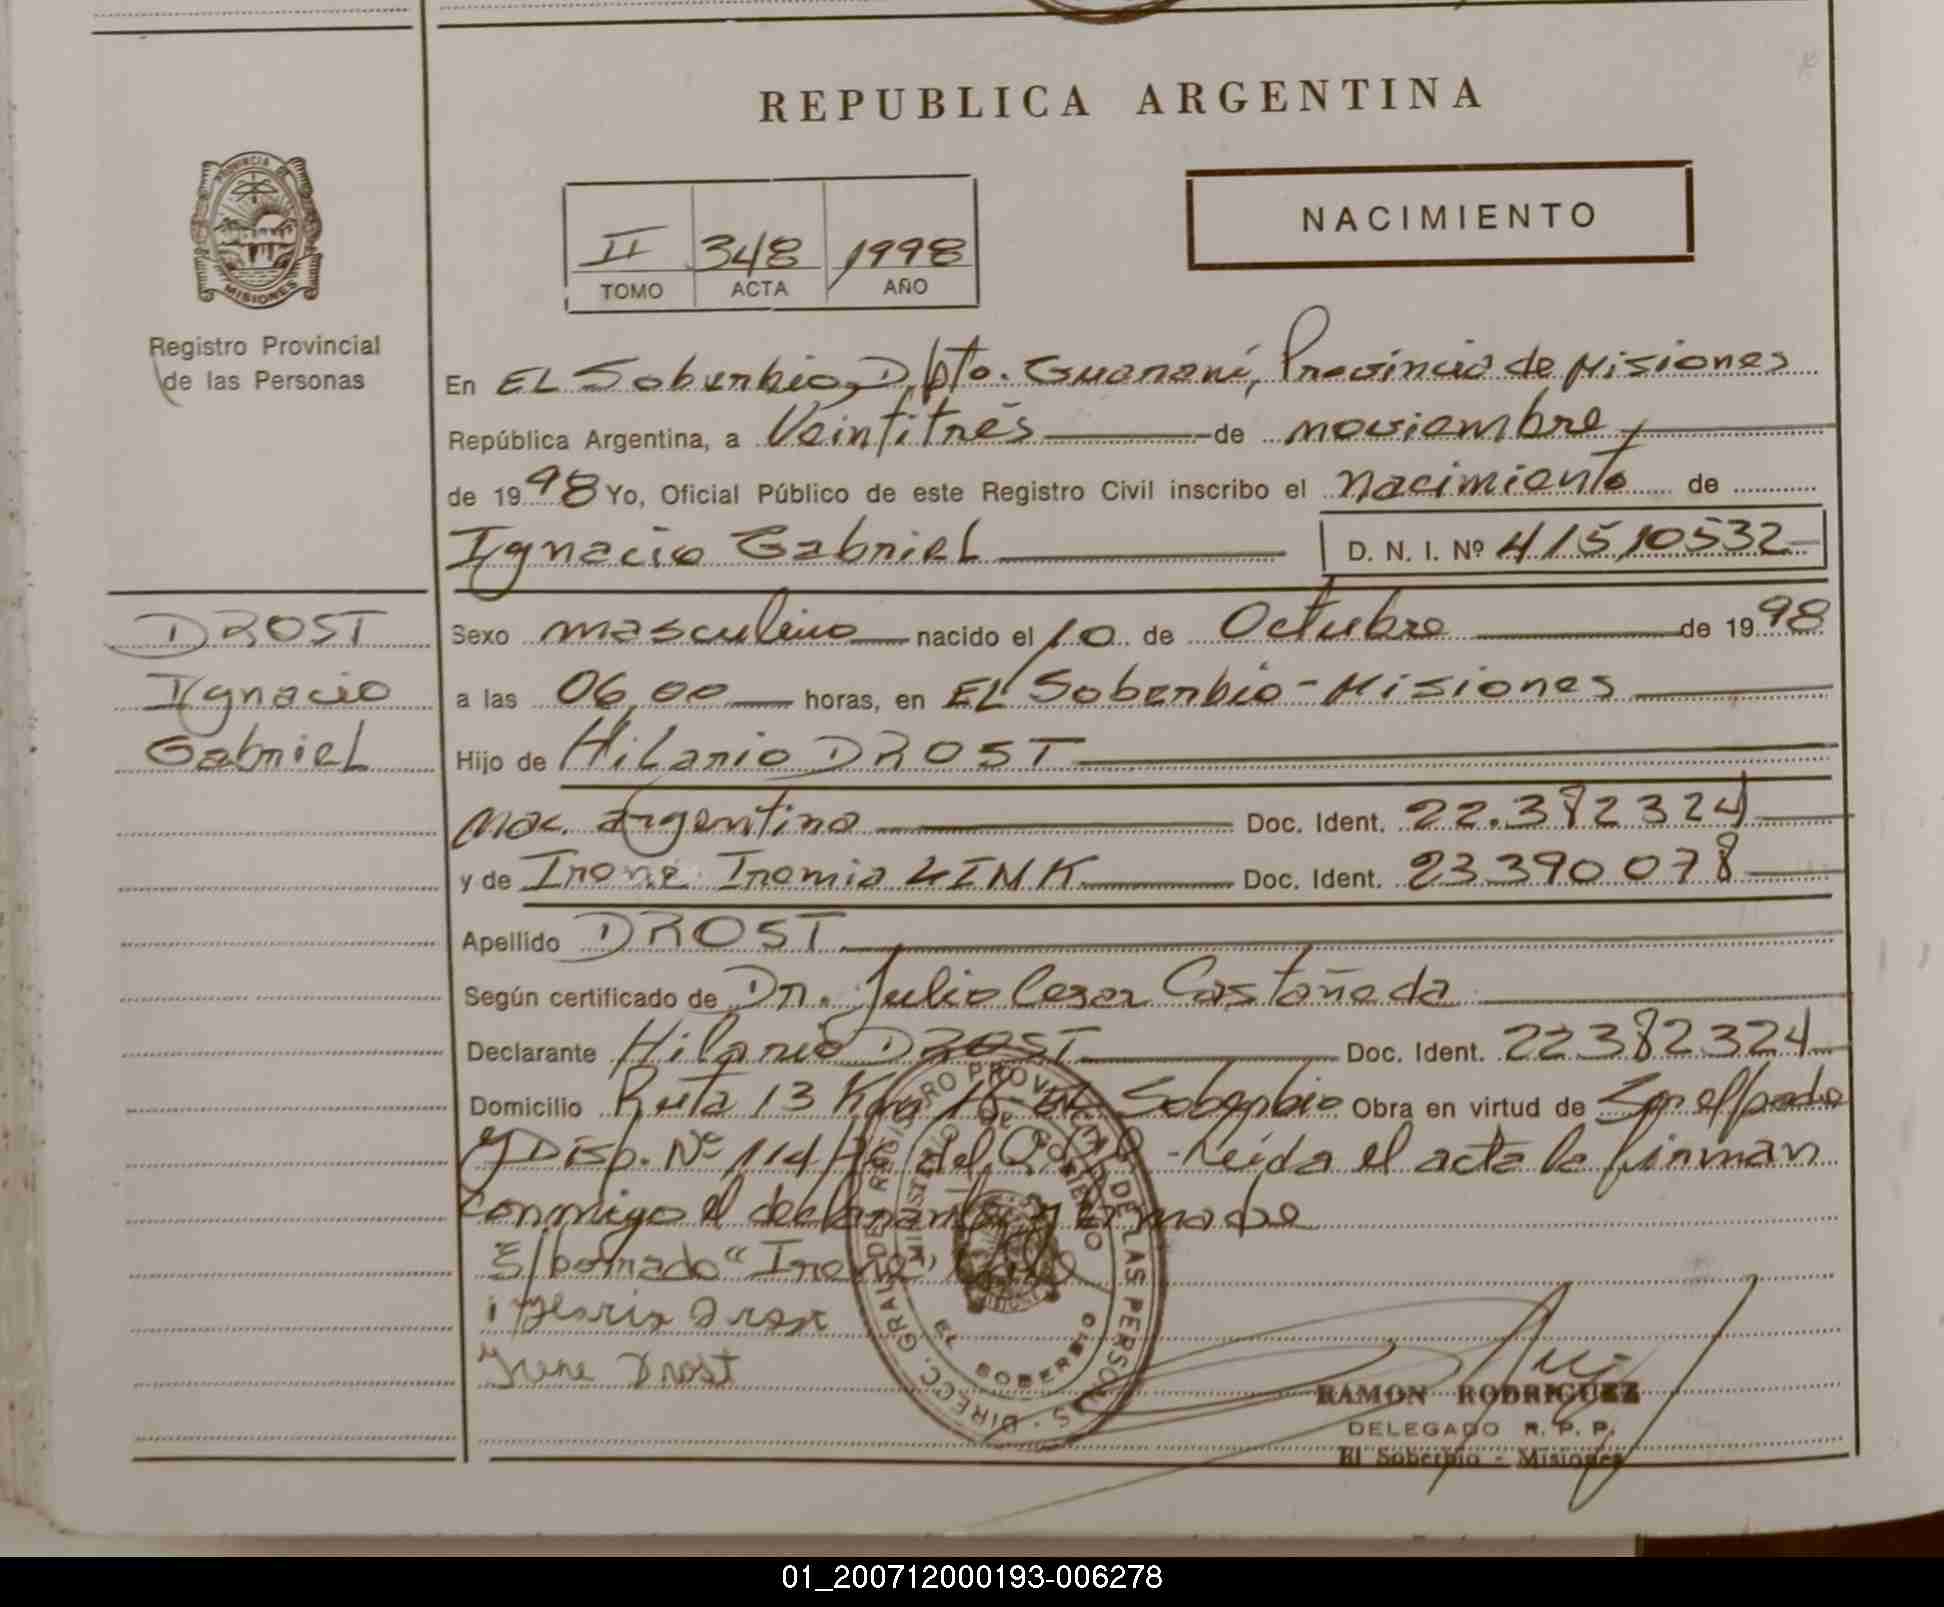 REPUBLICA ARGENTINA
PROVINCIA DE
MISIONES
Registro Provincial
de las Personas
NACIMIENTO
II 348 1998
TOMO ACTA AÑO
En EL Soberbio, Dpto. Guaraní, Provincia de Misiones
República Argentina, a Veintitrés de noviembre
de 1998 Yo, Oficial Público de este Registro Civil inscribo el nacimiento de
Ignacio Gabriel D. N. I. Nº 41510532
DROST
Ignacio
Gabriel
Sexo masculino nacido el 10 de Octubre de 1998
a las 06,00 horas, en EL Soberbio - Misiones
Hijo de Hilario DROST
Nac. argentino Doc. Ident. 22.382324
y de Irene Iremia LINK Doc. Ident. 23390078
Apellido DROST
Según certificado de Dr. Julio Cesar Castañeda
Declarante Hilario DROST Doc. Ident. 22382324
Domicilio Ruta 13 Km 18 EL Soberbio Obra en virtud de
y Disp. Nº 114/ del - Leída el acta la firman
conmigo el declarante y la madre
S/borrado "Irene"
Drost
Irene Drost
DIRECC. GRAL. DE REGISTRO PROVINCIAL DE LAS PERSONAS
MINISTERIO DE GOBIERNO
EL SOBERBIO
RAMON RODRIGUEZ
DELEGADO R. P. P.
El Soberbio - Misiones
01_200712000193-006278